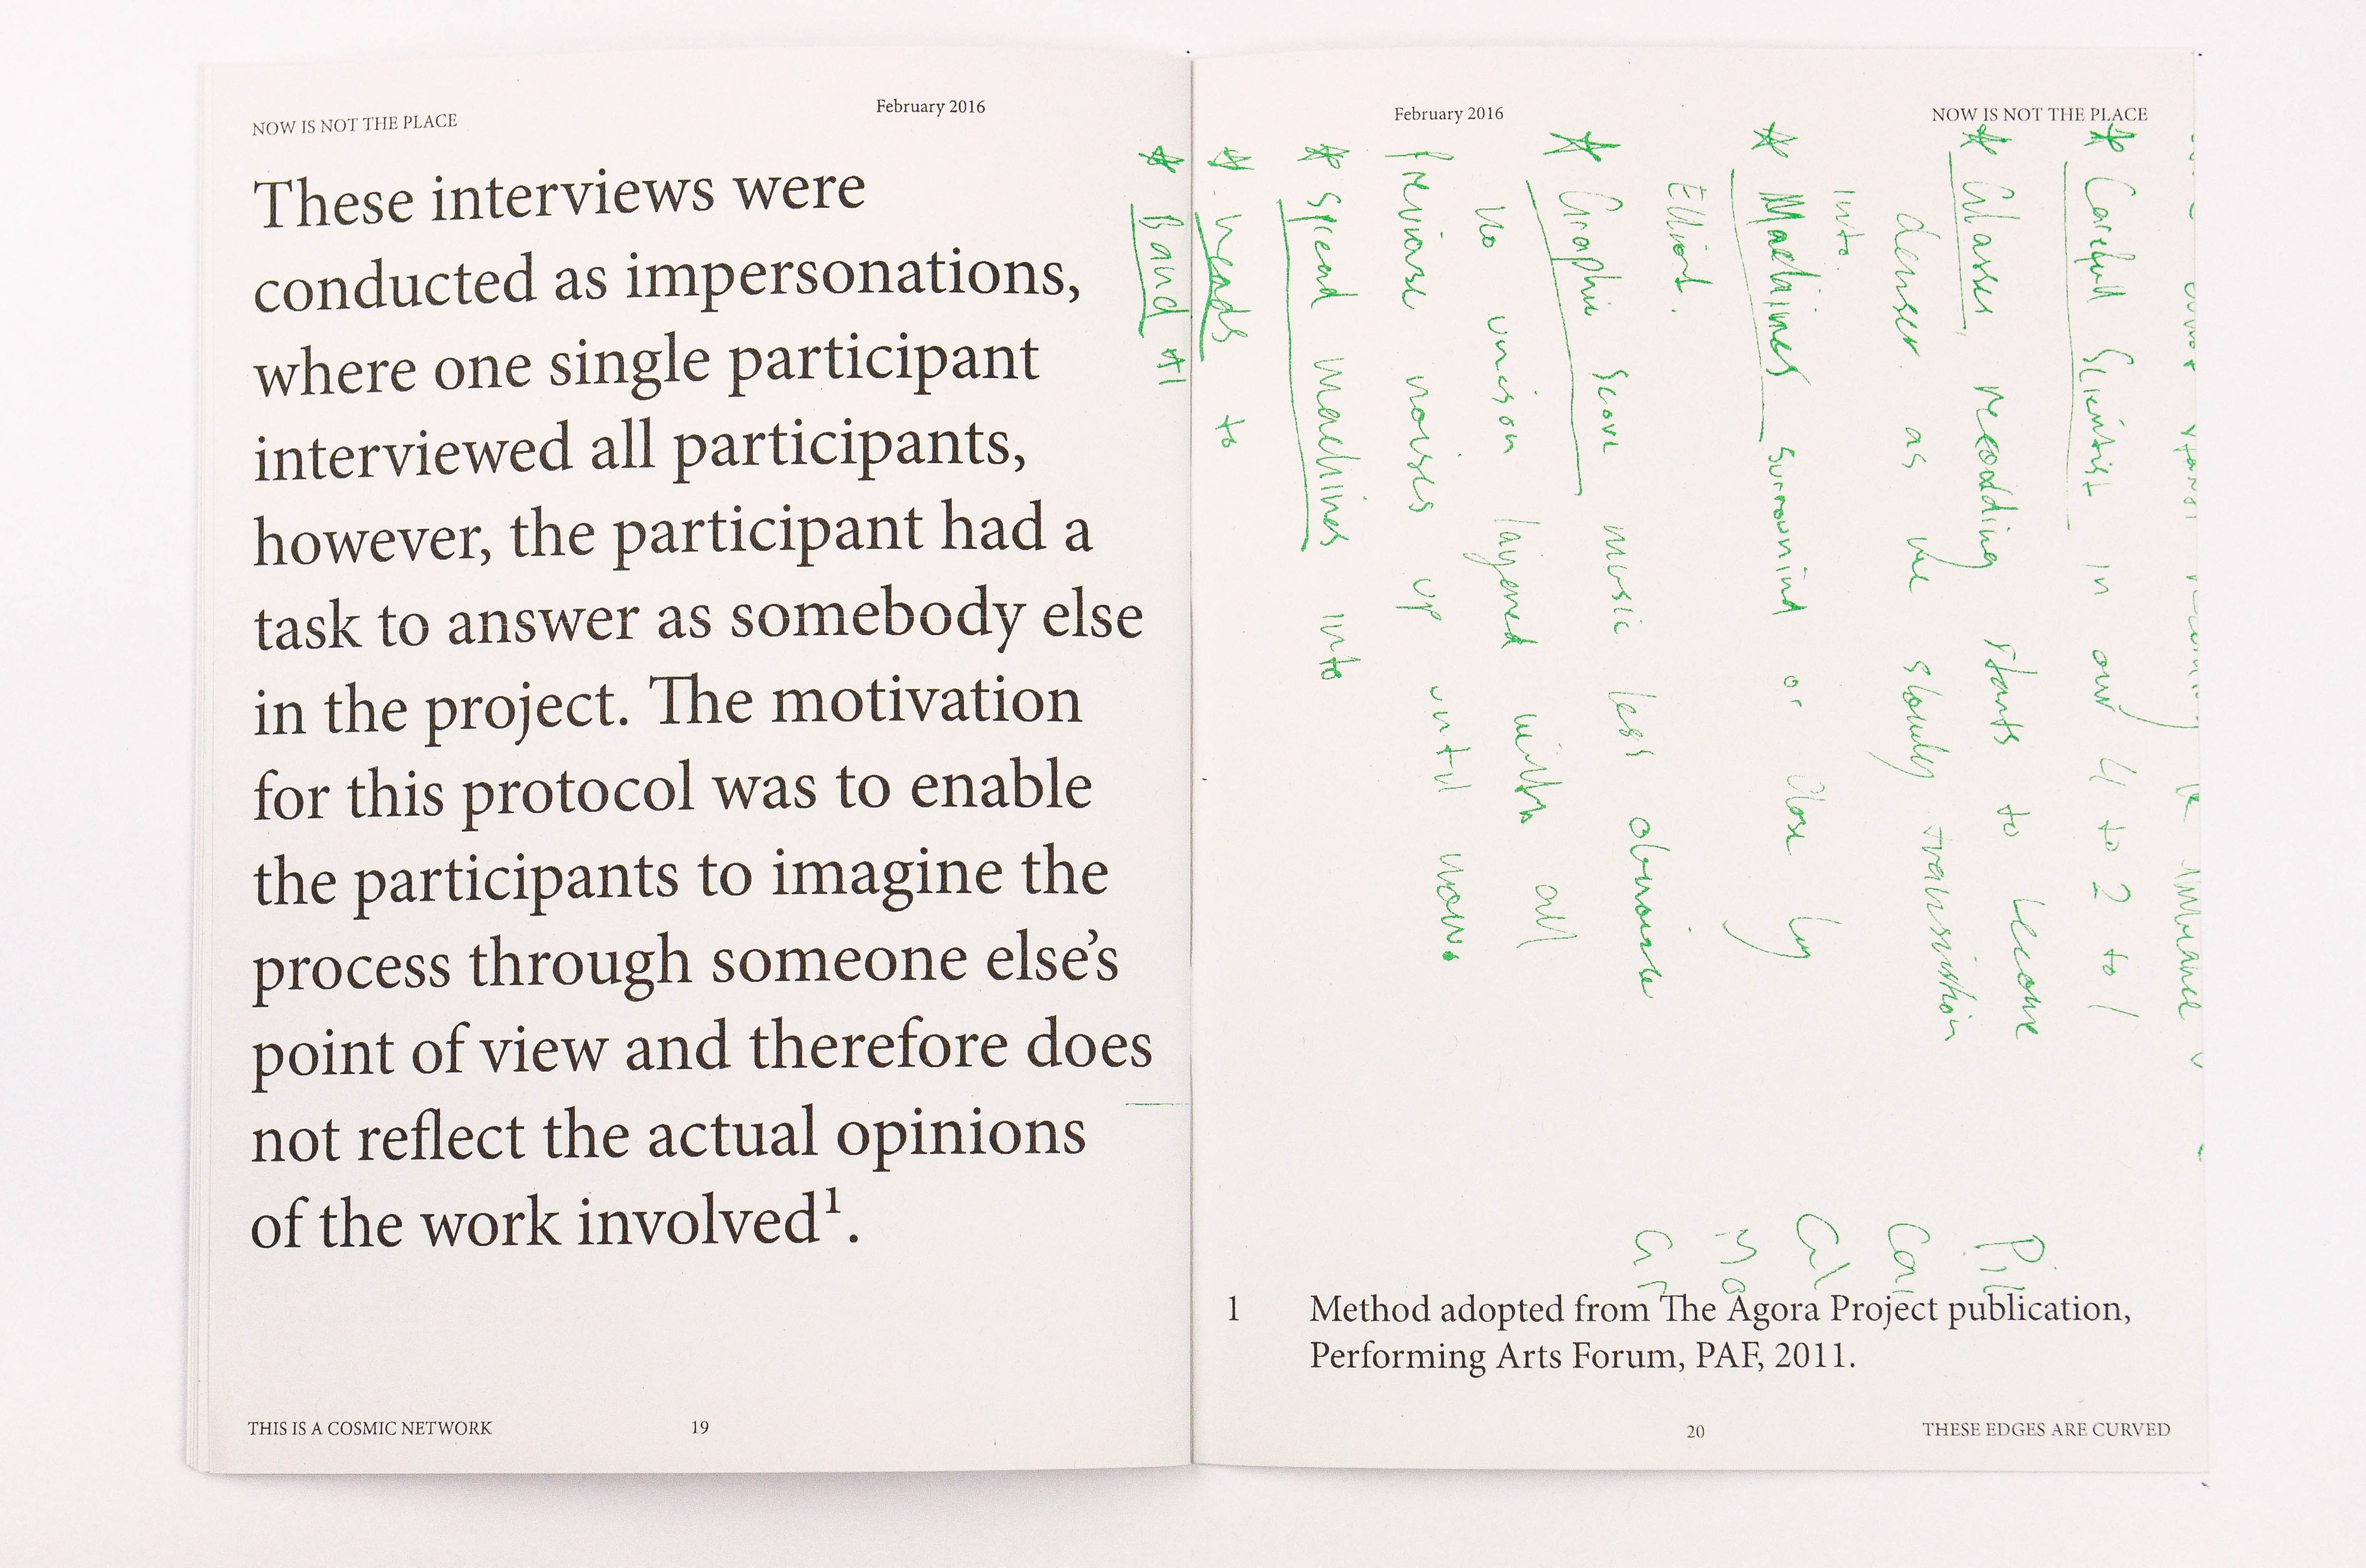 NOW IS NOT THE PLACE
February 2016
These interviews were
conducted as impersonations,
where one single participant
interviewed all participants,
however, the participant had a
task to answer as somebody else
in the project. The motivation
for this protocol was to enable
the participants to imagine the
process through someone else’s
point of view and therefore does
not reflect the actual opinions
of the work involved¹.
THIS IS A COSMIC NETWORK
19
February 2016
NOW IS NOT THE PLACE
* Carefull Scientist in our 4 to 2 to 1
* Glasses recording starts to become
denser as we slowly transition
into.
* Machines surround or close by
Elliot.
* Graphic score music less obvious
No unison layered with all
previous noises up until now.
* Speed machines into
* heads to
* Band
Pil
Car
Gl
Ma
Gr
1 Method adopted from The Agora Project publication,
Performing Arts Forum, PAF, 2011.
20
THESE EDGES ARE CURVED